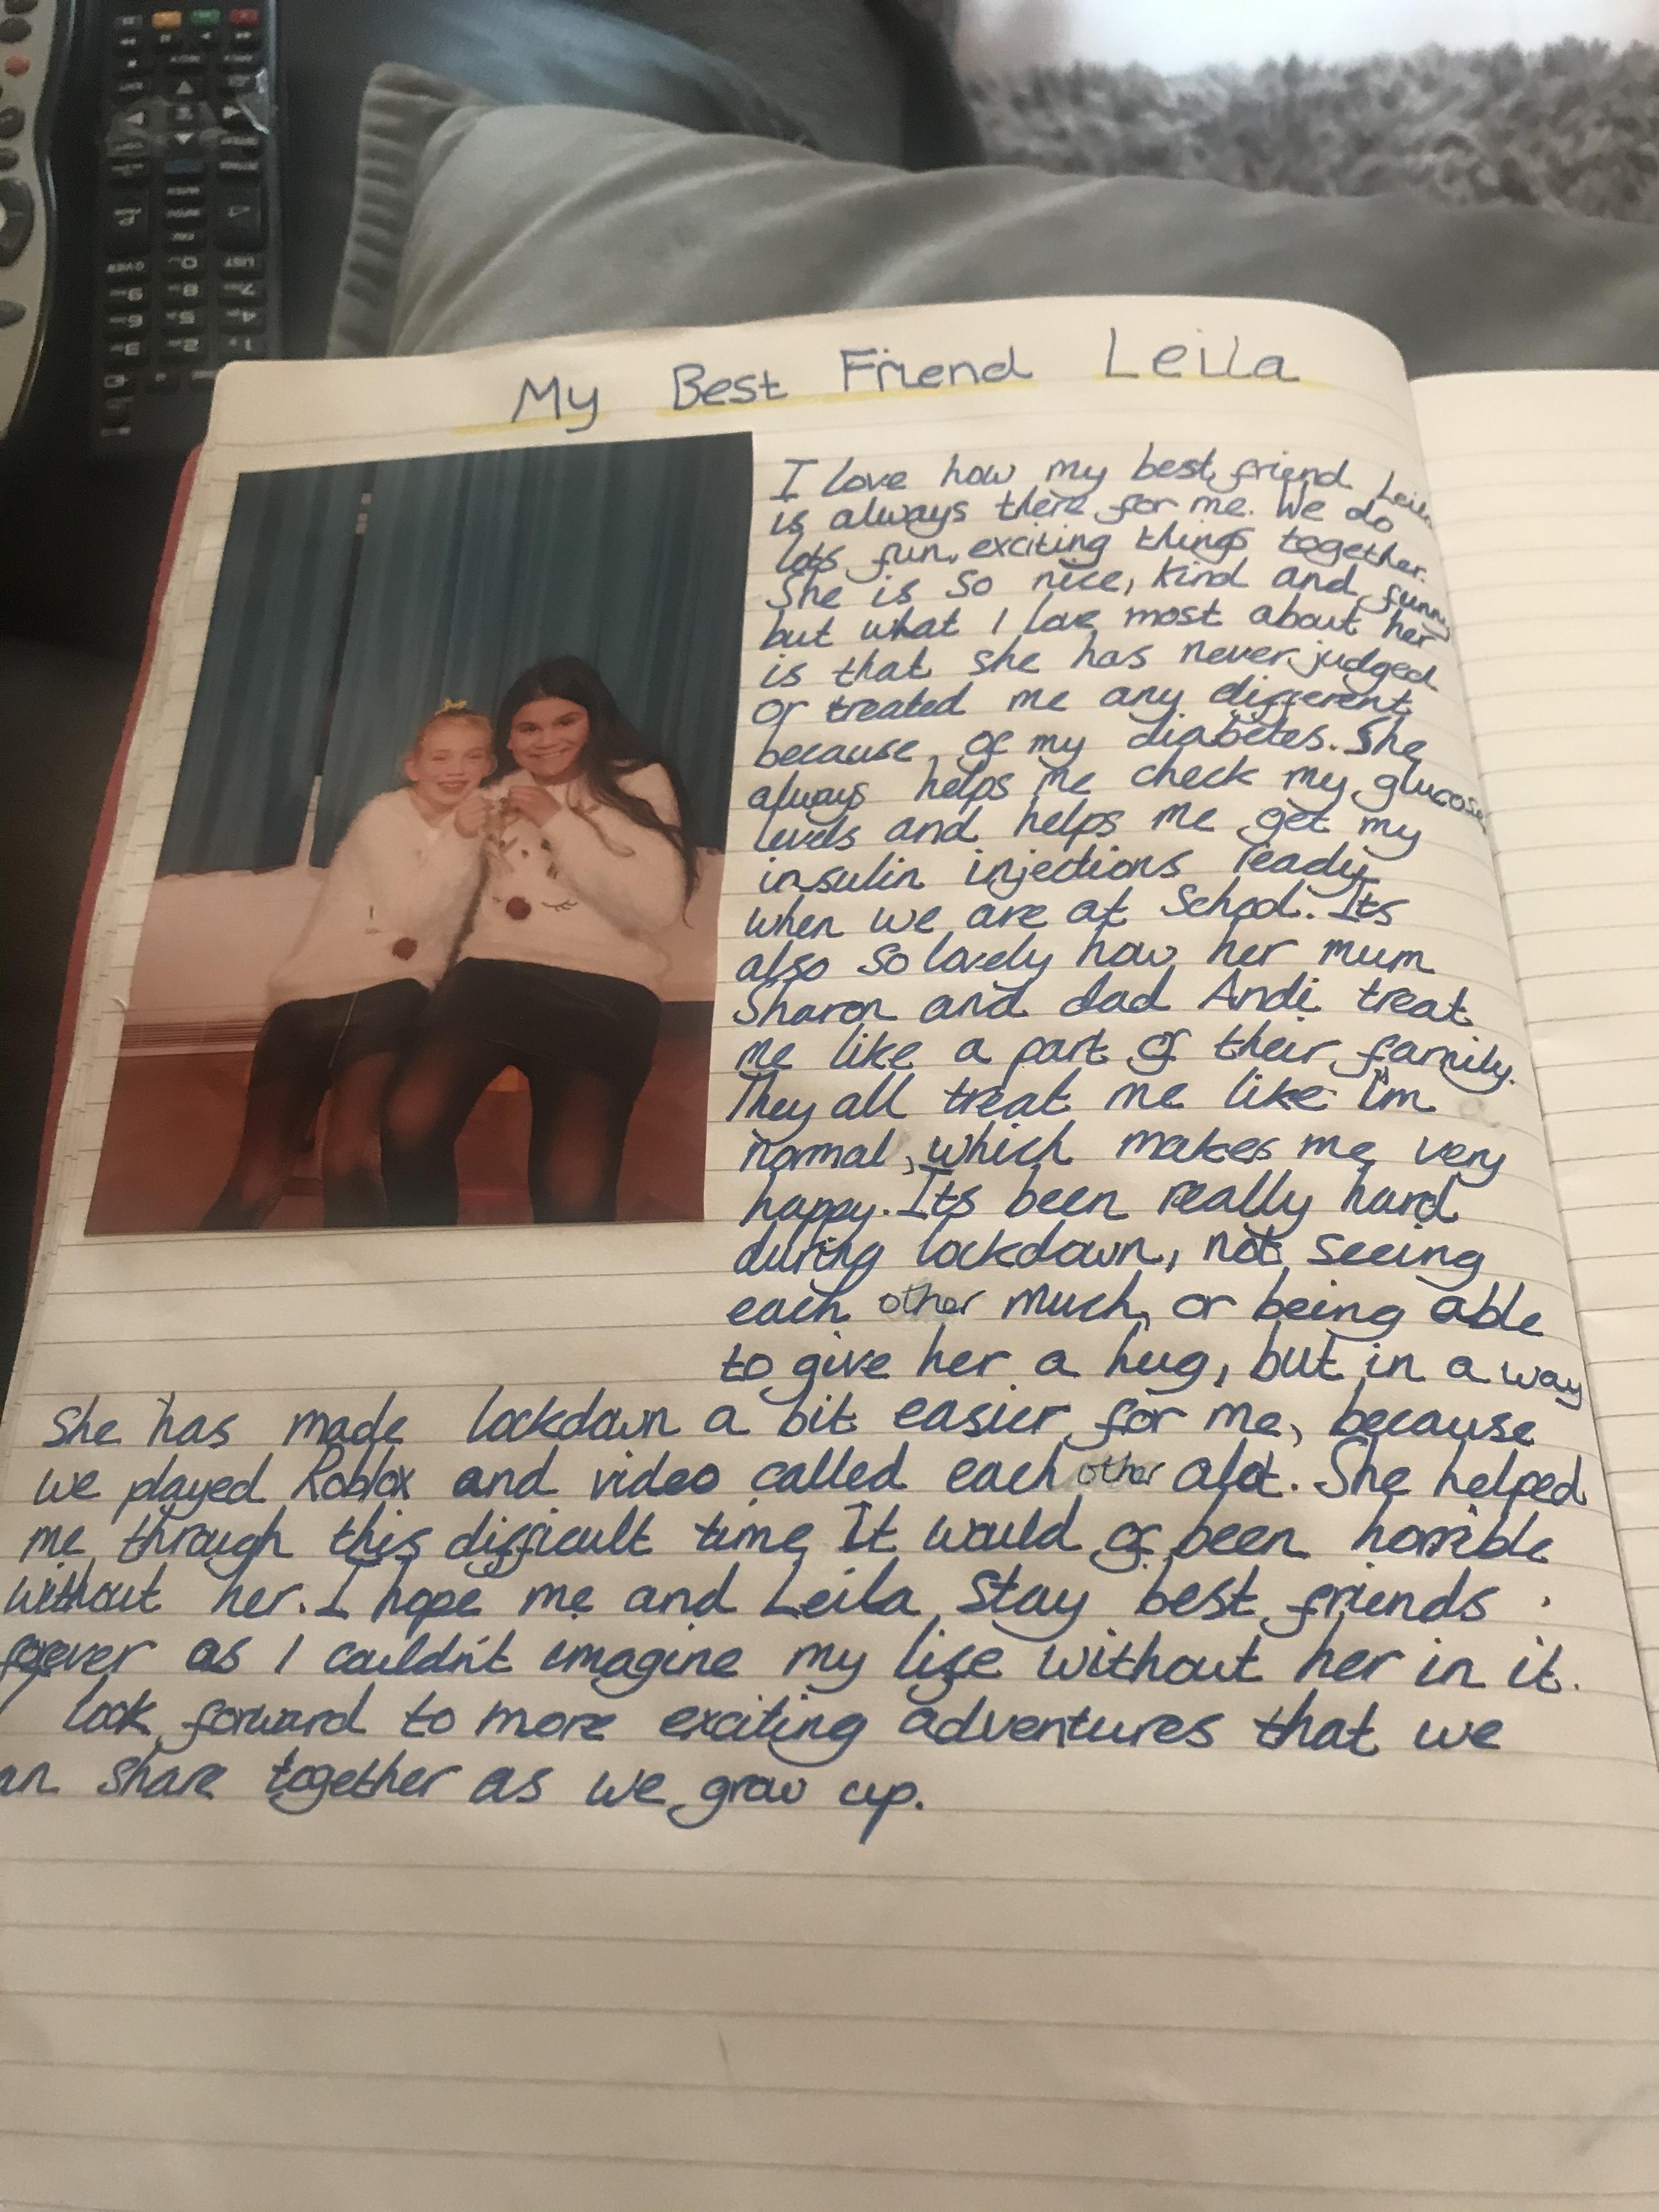 My Best Friend Leila
I love how my best friend Leila
is always there for me. We do
lots fun, exciting things together.
She is so nice, kind and funny
but what I love most about her
is that she has never judged
or treated me any different
because of my diabetes. She
always helps me check my glucose
levels and helps me get my
insulin injections ready
when we are at School. Its
also so lovely how her mum
Sharon and dad Andi treat
me like a part of their family.
They all treat me like i'm
normal, which makes me very
happy. Its been really hard
during lockdown, not seeing
each other much, or being able
to give her a hug, but in a way
She has made lockdown a bit easier for me, because
we played Roblox and video called each other alot. She helped
me through this difficult time It would of been horrible
without her. I hope me and Leila Stay best friends
forever as I couldn't imagine my life without her in it.
I look forward to more exciting adventures that we
an share together as we grow up.